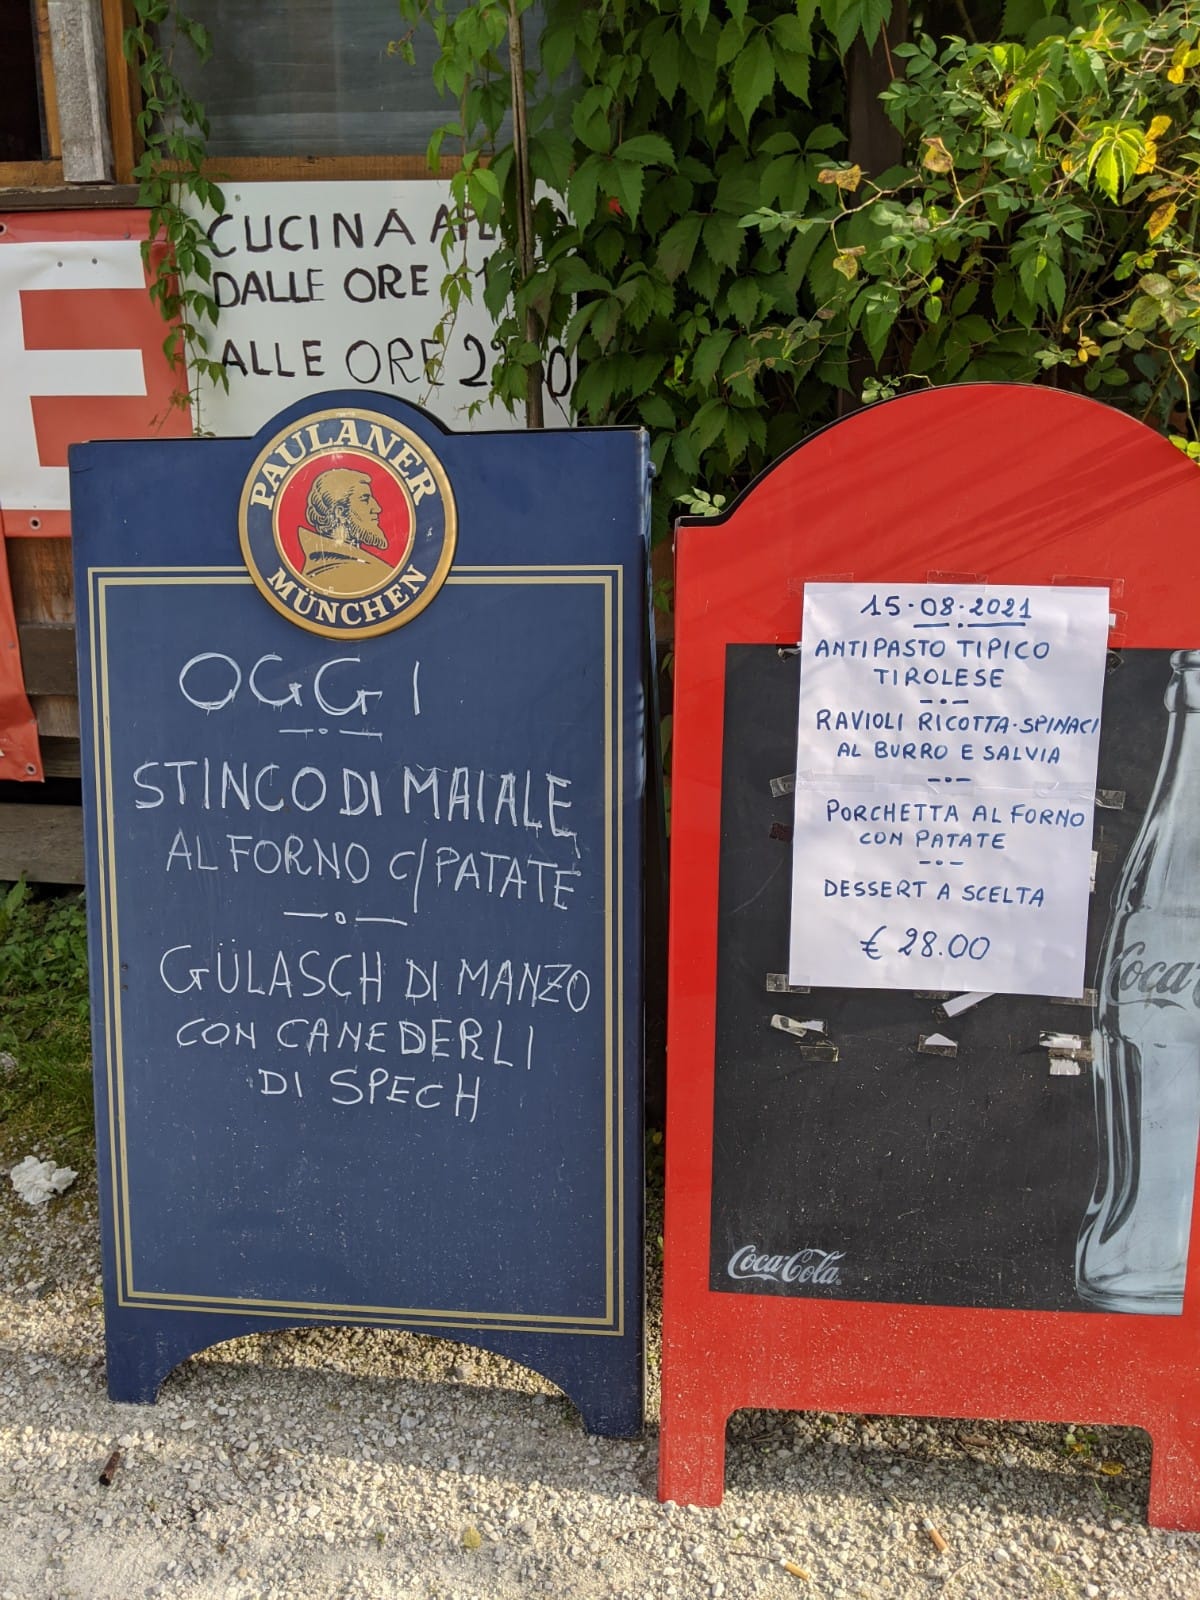 CUCINA
DALLE ORE
ALLE ORE
E
PAULANER
MÜNCHEN
OGGI
STINCO DI MAIALE
AL FORNO C/PATATE
GÜLASCH DI MANZO
CON CANEDERLI
DI SPECH
15·08·2021
ANTIPASTO TIPICO
TIROLESE
RAVIOLI RICOTTA-SPINACI
AL BURRO E SALVIA
PORCHETTA AL FORNO
CON PATATE
DESSERT A SCELTA
€ 28.00
Coca
Coca-Cola